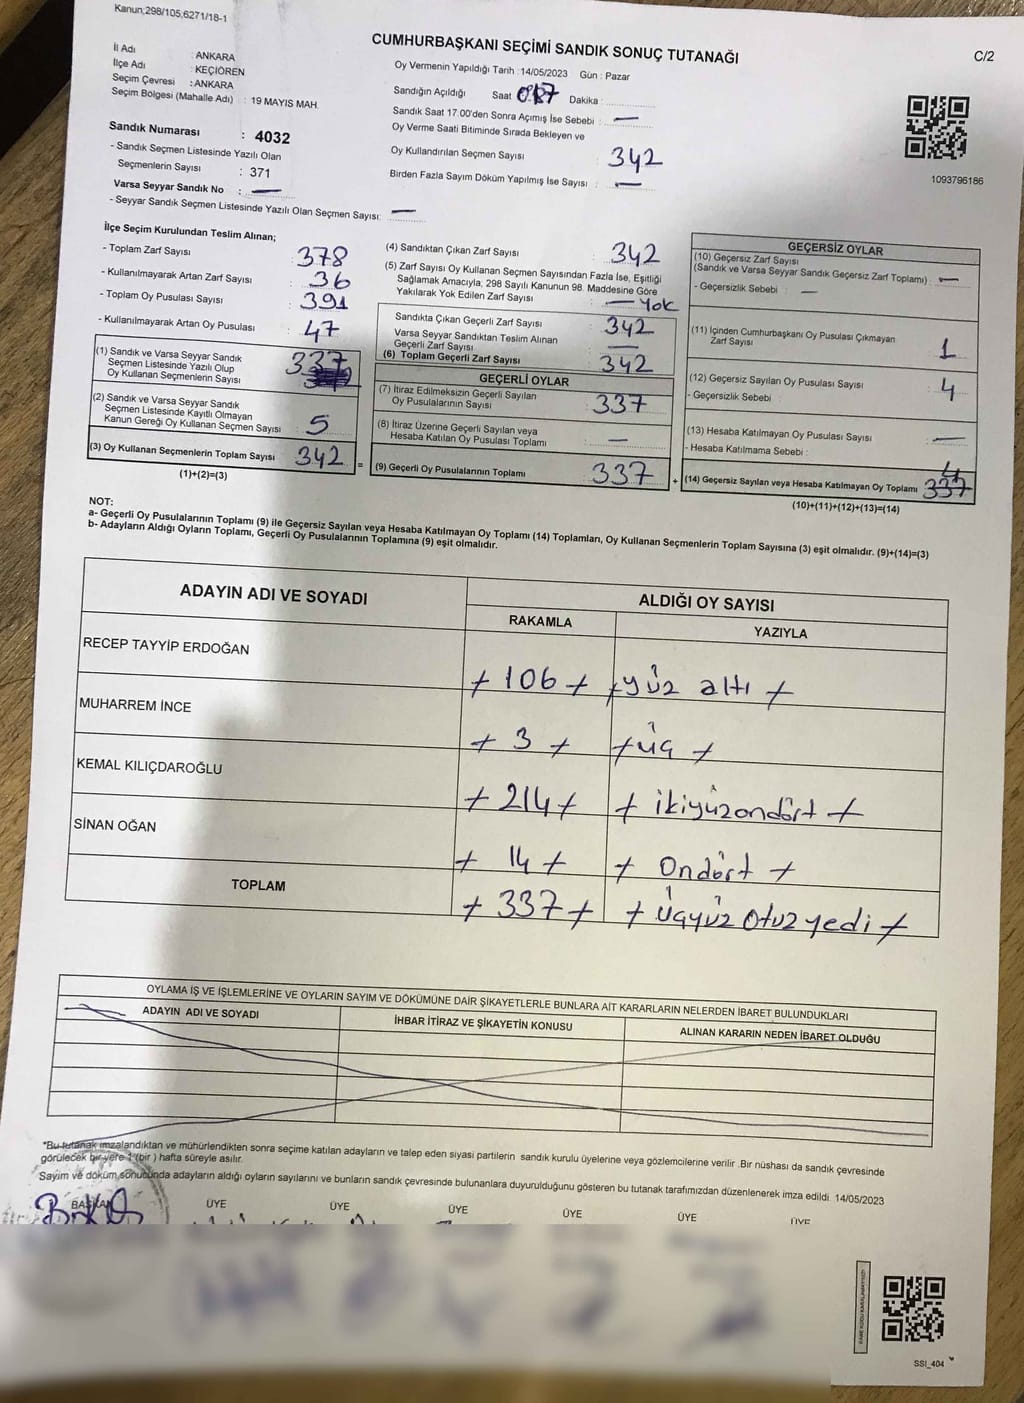 Kanun;298/105;6271/18-1
CUMHURBAŞKANI SEÇİMİ SANDIK SONUÇ TUTANAĞI
C/2
İl Adı : ANKARA
İlçe Adı : KEÇİÖREN
Seçim Çevresi : ANKARA
Seçim Bölgesi (Mahalle Adı) : 19 MAYIS MAH.
Oy Vermenin Yapıldığı Tarih :14/05/2023 Gün : Pazar
Sandığın Açıldığı Saat Dakika :
Sandık Saat 17:00'den Sonra Açımış İse Sebebi : —
Oy Verme Saati Bitiminde Sırada Bekleyen ve
Oy Kullandırılan Seçmen Sayısı : 342
Birden Fazla Sayım Döküm Yapılmış İse Sayısı : —
1093796186
Sandık Numarası : 4032
- Sandık Seçmen Listesinde Yazılı Olan
Seçmenlerin Sayısı : 371
Varsa Seyyar Sandık No : —
- Seyyar Sandık Seçmen Listesinde Yazılı Olan Seçmen Sayısı: —
İlçe Seçim Kurulundan Teslim Alınan;
- Toplam Zarf Sayısı : 378
- Kullanılmayarak Artan Zarf Sayısı : 36
- Toplam Oy Pusulası Sayısı : 391
- Kullanılmayarak Artan Oy Pusulası : 47
(1) Sandık ve Varsa Seyyar Sandık
Seçmen Listesinde Yazılı Olup
Oy Kullanan Seçmenlerin Sayısı : 337
(2) Sandık ve Varsa Seyyar Sandık
Seçmen Listesinde Kayıtlı Olmayan
Kanun Gereği Oy Kullanan Seçmen Sayısı : 5
(3) Oy Kullanan Seçmenlerin Toplam Sayısı : 342 =
(1)+(2)=(3)
(4) Sandıktan Çıkan Zarf Sayısı : 342
(5) Zarf Sayısı Oy Kullanan Seçmen Sayısından Fazla İse, Eşitliği
Sağlamak Amacıyla; 298 Sayılı Kanunun 98. Maddesine Göre
Yakılarak Yok Edilen Zarf Sayısı : — Yok
Sandıkta Çıkan Geçerli Zarf Sayısı : 342
Varsa Seyyar Sandıktan Teslim Alınan
Geçerli Zarf Sayısı : —
(6) Toplam Geçerli Zarf Sayısı : 342
GEÇERLİ OYLAR
(7) İtiraz Edilmeksizin Geçerli Sayılan
Oy Pusulalarının Sayısı : 337
(8) İtiraz Üzerine Geçerli Sayılan veya
Hesaba Katılan Oy Pusulası Toplamı : —
(9) Geçerli Oy Pusulalarının Toplamı : 337 +
GEÇERSİZ OYLAR
(10) Geçersiz Zarf Sayısı
(Sandık ve Varsa Seyyar Sandık Geçersiz Zarf Toplamı) : —
- Geçersizlik Sebebi : —
(11) İçinden Cumhurbaşkanı Oy Pusulası Çıkmayan
Zarf Sayısı : 1
(12) Geçersiz Sayılan Oy Pusulası Sayısı : 4
- Geçersizlik Sebebi :
(13) Hesaba Katılmayan Oy Pusulası Sayısı : —
- Hesaba Katılmama Sebebi :
(14) Geçersiz Sayılan veya Hesaba Katılmayan Oy Toplamı : 4 337
(10)+(11)+(12)+(13)=(14)
NOT:
a- Geçerli Oy Pusulalarının Toplamı (9) ile Geçersiz Sayılan veya Hesaba Katılmayan Oy Toplamı (14) Toplamları, Oy Kullanan Seçmenlerin Toplam Sayısına (3) eşit olmalıdır. (9)+(14)=(3)
b- Adayların Aldığı Oyların Toplamı, Geçerli Oy Pusulalarının Toplamına (9) eşit olmalıdır.
ADAYIN ADI VE SOYADI
ALDIĞI OY SAYISI
RAKAMLA YAZIYLA
RECEP TAYYİP ERDOĞAN + 106 + + yüz altı +
MUHARREM İNCE + 3 + + üç +
KEMAL KILIÇDAROĞLU + 214 + + ikiyüzondört +
SİNAN OĞAN + 14 + + Ondört +
TOPLAM + 337 + + üçyüz otuz yedi +
OYLAMA İŞ VE İŞLEMLERİNE VE OYLARIN SAYIM VE DÖKÜMÜNE DAİR ŞİKAYETLERLE BUNLARA AİT KARARLARIN NELERDEN İBARET BULUNDUKLARI
ADAYIN ADI VE SOYADI İHBAR İTİRAZ VE ŞİKAYETİN KONUSU ALINAN KARARIN NEDEN İBARET OLDUĞU
*Bu tutanak imzalandıktan ve mühürlendikten sonra seçime katılan adayların ve talep eden siyasi partilerin sandık kurulu üyelerine veya gözlemcilerine verilir .Bir nüshası da sandık çevresinde
görülecek bir yere 1 (bir ) hafta süreyle asılır.
Sayım ve döküm sonucunda adayların aldığı oyların sayılarını ve bunların sandık çevresinde bulunanlara duyurulduğunu gösteren bu tutanak tarafımızdan düzenlenerek imza edildi 14/05/2023
BAŞKAN ÜYE ÜYE ÜYE ÜYE ÜYE ÜYE
SSI_404